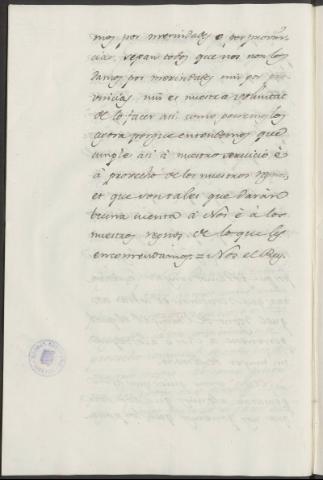 mos por merindades e por provin-
cias, sepan todos que nos non los
damos por merindades nin por pro-
vincias, nin es nuestra voluntat
de lo facer asi como poremos los
otra porque entendemos que
cumple asi à nuestro servicio è
à provecho de los nuestros regnos,
et que son tales que daràn
buena cuenta à Nos è a los
nuestros regnos de lo que les
encomendamos = Nos el Rey.